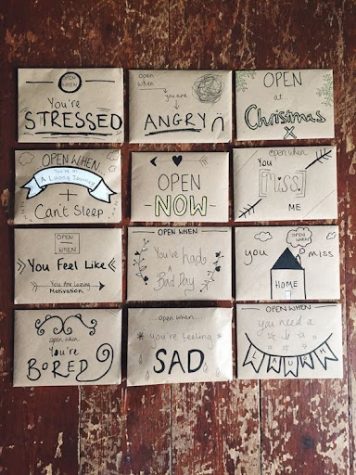 OPEN
WHEN
You're
STRESSED
open
when
you are
ANGRY
OPEN
at
Christmas
X
OPEN WHEN
A Journey
+
Can't Sleep
OPEN
NOW
open when
You
Miss
ME
OPEN
WHEN
You Feel Like
You Are Losing
Motivation
OPEN WHEN
You've had
a
Bad Day
OPEN
WHEN
you miss
HOME
open when
You're
BORED
open when...
you're feeling
SAD
OPEN WHEN
you need
a
LAUGH